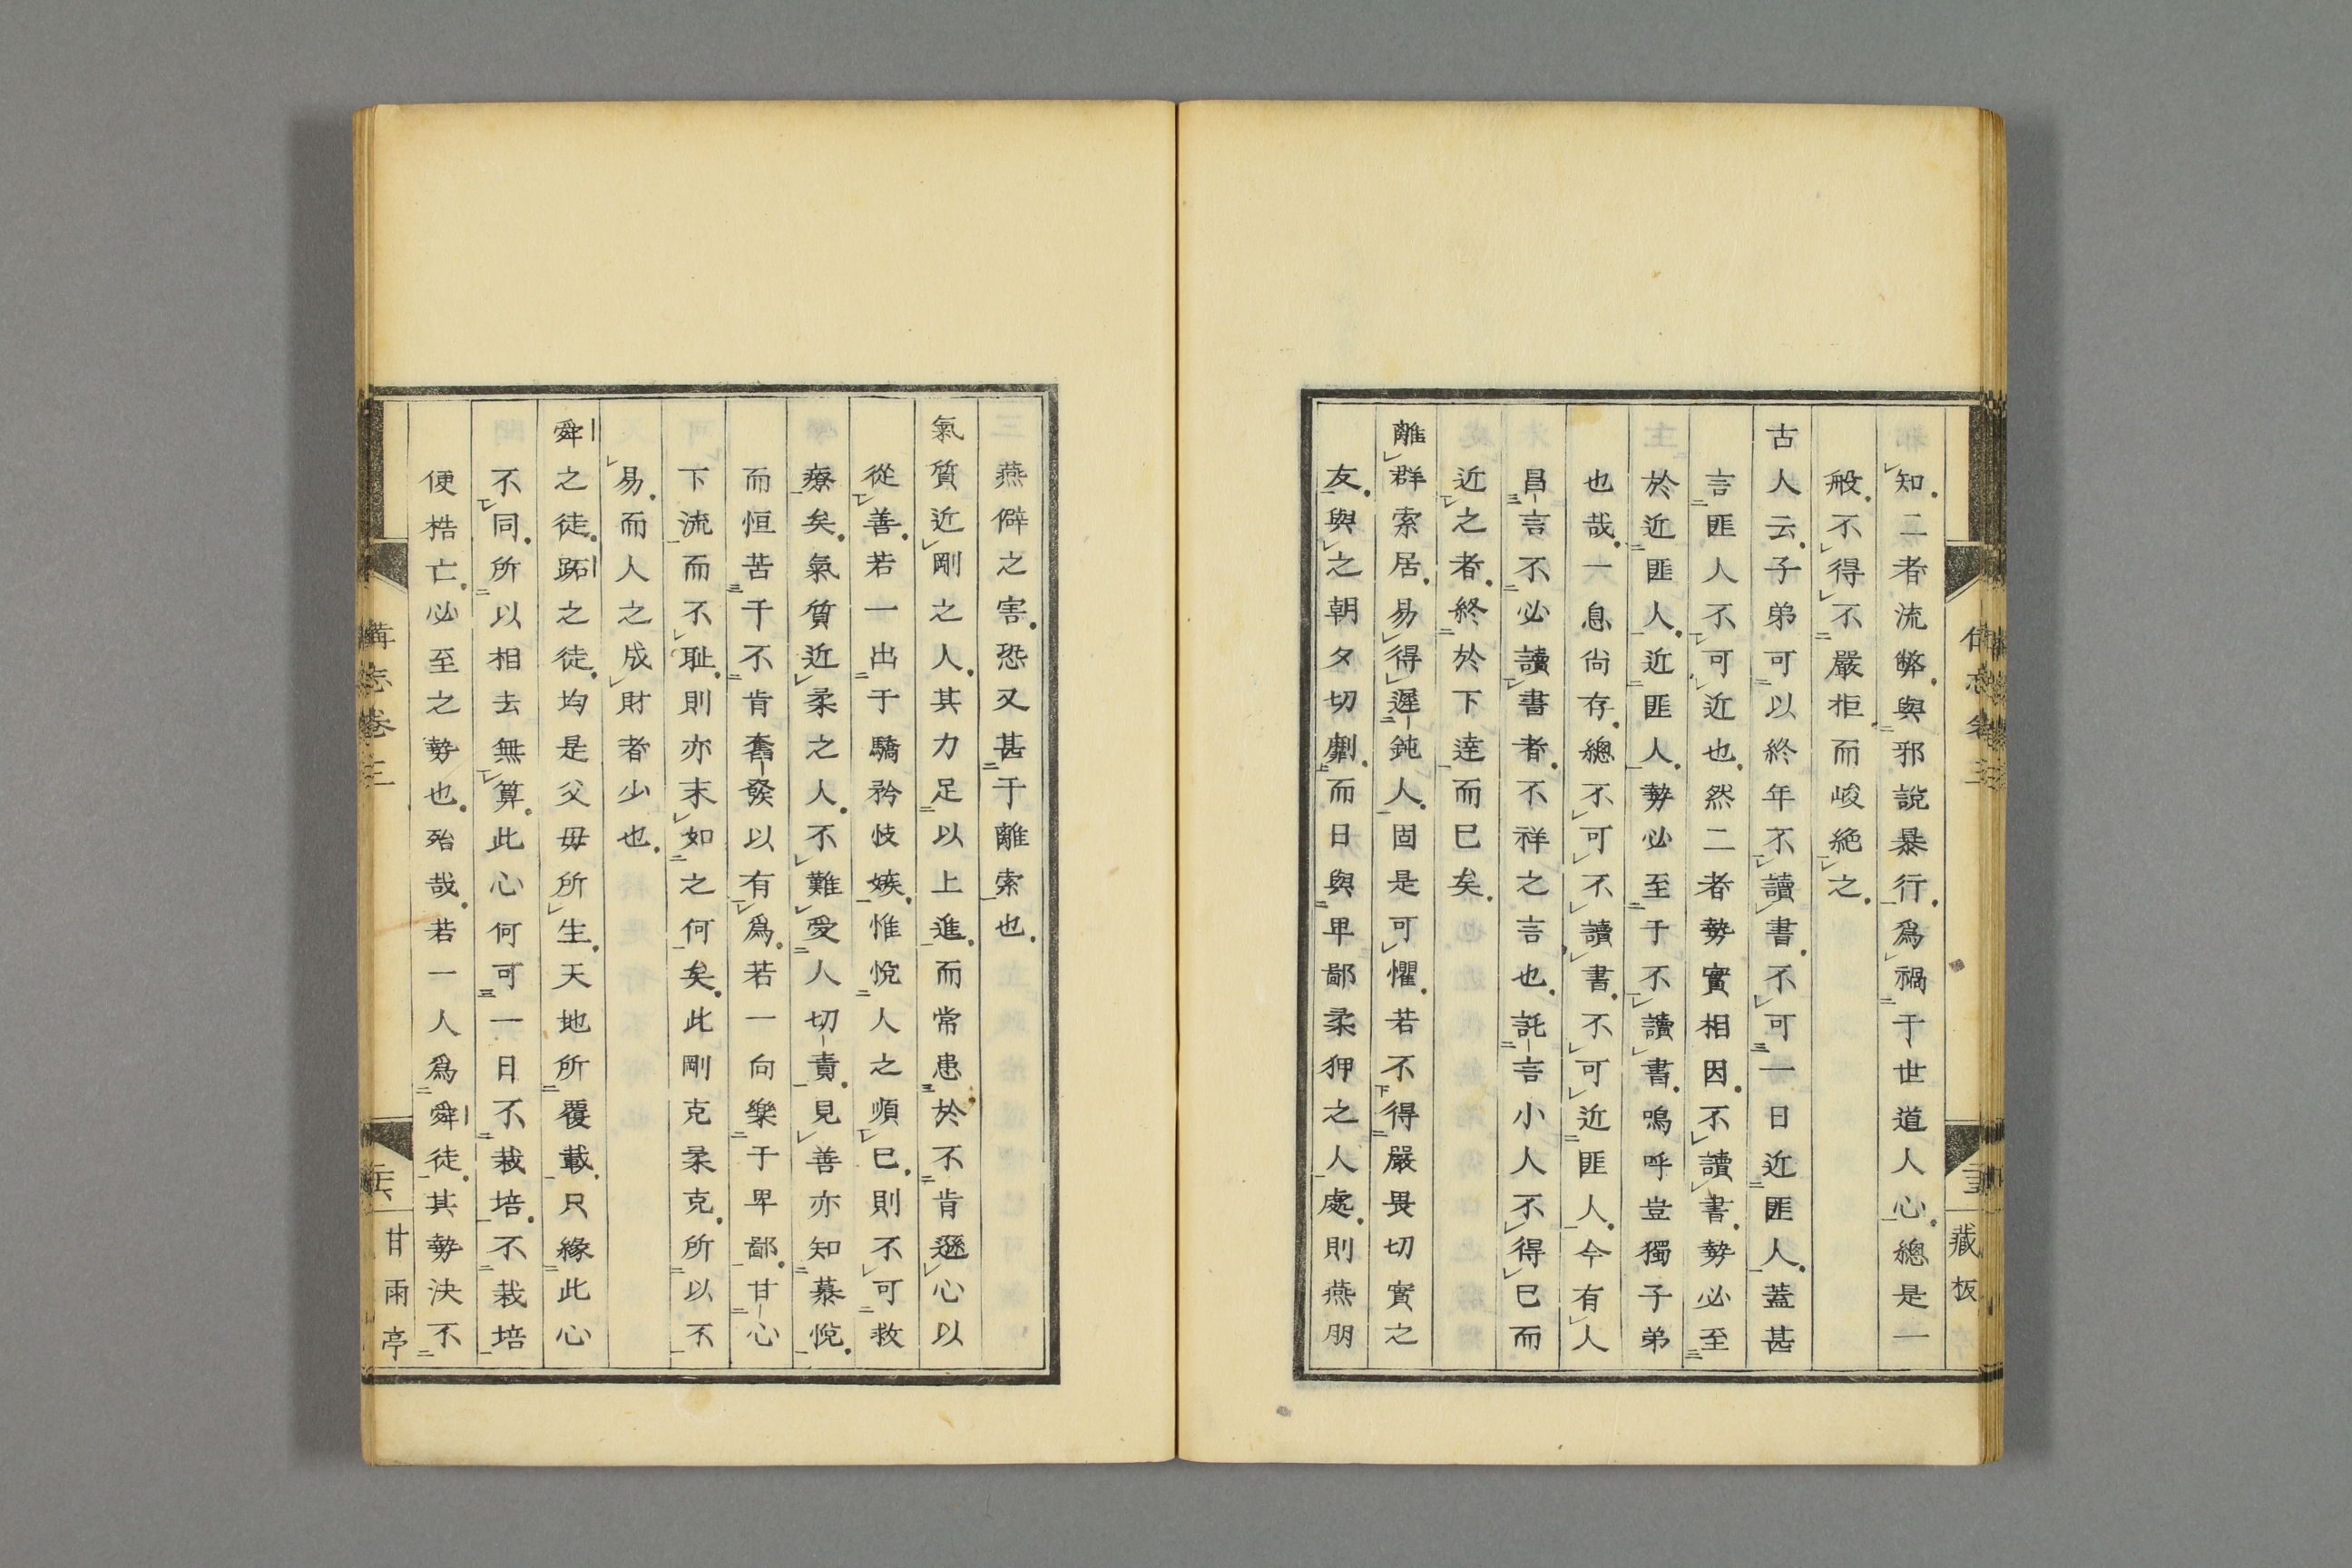 知二者流弊與邪說暴行爲禍于世道人心總是一
般不得不嚴拒而峻絶之
古人云子弟可以終年不讀書不可一日近匪人蓋甚
言匪人不可近也然二者勢實相因不讀書勢必至
於近匪人近匪人勢必至于不讀書嗚呼豈獨子弟
也哉一息尙存總不可不讀書不可近匪人今有人
昌言不必讀書者不祥之言也託言小人不得已而
近之者終於下達而已矣
離群索居易得遲鈍人固是可懼若不得嚴畏切實之
友與之朝夕切劘而日與卑鄙柔狎之人處則燕朋
藏板
燕僻之害恐又甚于離索也
氣質近剛之人其力足以上進而常患於不肯遜心以
從善若一出于驕矜忮嫉惟悅人之順已則不可救
療矣氣質近柔之人不難受人切責見善亦知慕悅
而恒苦于不肯奮發以有爲若一向樂于卑鄙甘心
下流而不耻則亦末如之何矣此剛克柔克所以不
易而人之成財者少也
舜之徒跖之徒均是父母所生天地所覆載只緣此心
不同所以相去無算此心何可一日不栽培不栽培
便梏亡必至之勢也殆哉若一人爲舜徒其勢決不
備忘卷三
甘雨亭